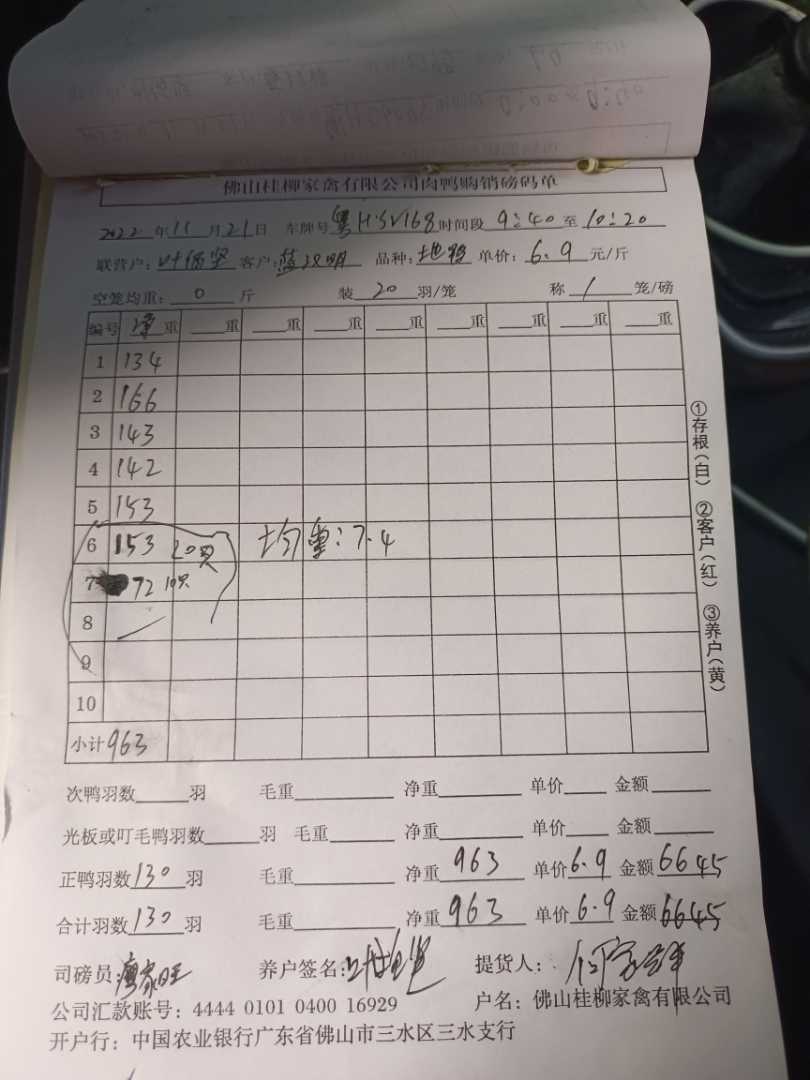 佛山桂柳家禽有限公司肉鸭购销磅码单
2022年11月21日 车牌号粤HSV168时间段9:40至10:20
联营户:叶 坚 客户:蓝汉明 品种:地鸭 单价:6.9元/斤
空笼均重:0斤 装20羽/笼 称1笼/磅
编号 净重 重 重 重 重 重 重 重 重
1 134
2 166
3 143
4 142
5 153
6 153 20只 均重:7.4
7 72 10只
8
9
10
小计963
次鸭羽数 羽 毛重 净重 单价 金额
光板或叮毛鸭羽数 羽 毛重 净重 单价 金额
正鸭羽数130羽 毛重 净重963 单价6.9 金额6645
合计羽数130羽 毛重 净重963 单价6.9 金额6645
司磅员:唐家旺 养户签名: 提货人:
公司汇款账号:4444 0101 0400 16929 户名:佛山桂柳家禽有限公司
开户行:中国农业银行广东省佛山市三水区三水支行
①存根(白) ②客户(红) ③养户(黄)